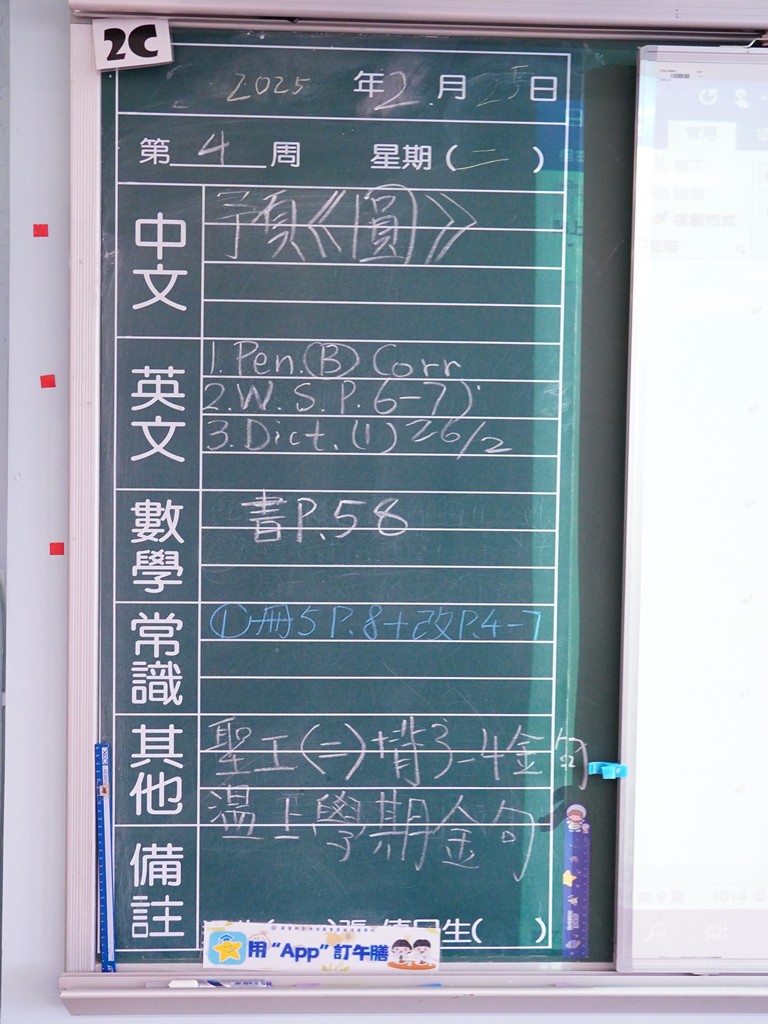 2C
2025 年 2 月 25 日
第 4 周 星期 (二)
中文
予頁《圓》
英文
1. Pen. (B) Corr
2. W. S. P. 6-7)
3. Dict. (1) 26/2
數學
書P.58
常識
①冊5 P.8+改P.4-7
其他
聖工(二)+背3-4金句
溫上學期金句
備註
生( )
用 “App” 訂午膳
常用
複製格式